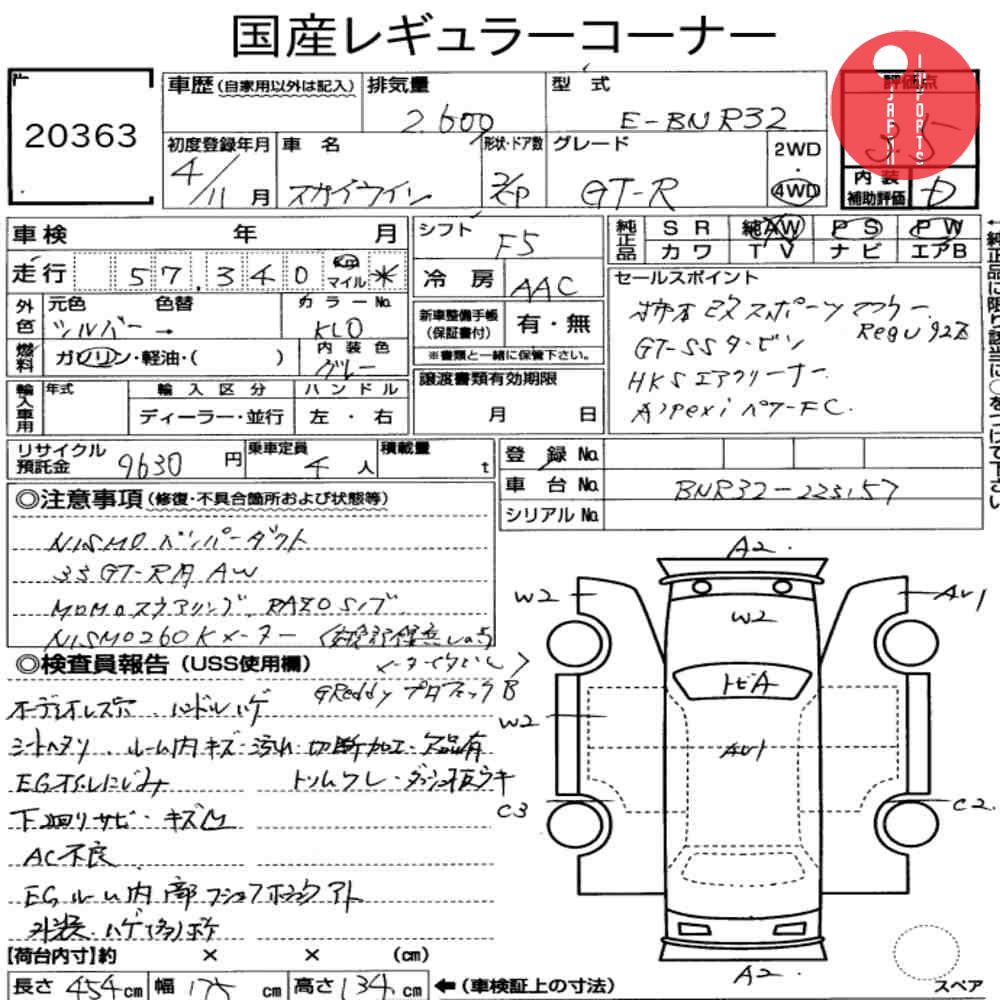 国産レギュラーコーナー
20363
車歴 (自家用以外は記入) 排気量 2.600 型式 E-BNR32
評価点 3.5
JAPAN IMPORTS
初度登録年月 4/11月 車名 スカイライン 形状・ドア数 2P グレード GT-R 2WD・4WD
内装補助評価 D
車検 年 月 シフト F5 純正品 SR 純AW PS PW
カワ TV ナビ エアB
走行 57,340 km マイル * 冷房 AAC
←純正品に限り該当に○をつけて下さい
外色 元色 色替 シルバー→ カラーNo. KL0
新車整備手帳(保証書付) 有・無
※書類と一緒に保管下さい。
燃料 ガソリン・軽油・( ) 内装色 グレー
セールスポイント
柿本改スポーツマフラー Regu 92R
GT-SSタービン
HKSエアクリーナー
A'pexi パワーFC.
輸入車用 年式 輸入区分 ハンドル
ディーラー・並行 左・右
譲渡書類有効期限
月 日
リサイクル預託金 9630円 乗車定員 4人 積載量 t
登録No.
車台No. BNR32-223157
シリアルNo.
◎注意事項(修復・不具合箇所および状態等)
NISMO バンパーダクト
33GT-R用 AW
MOMOステアリング, RAZOシフ
NISMO260Kメーター
◎検査員報告(USS使用欄)
GReddy プロフェックB
オーディオレス穴・ハンドルハゲ
シートヘタリ・ルーム内キズ・汚れ・切断加工・欠品有
EGオイルにじみ トリムワレ・ダッシュ板ウキ
下廻りサビ・キズ凹
AC不良
EGルーム内部
A2.
W2
AU1
W2
トビA
W2
AU1
C3
C2.
A2
【荷台内寸】約 × × (cm)
長さ 454cm 幅 175cm 高さ 134cm ←(車検証上の寸法)
スペア